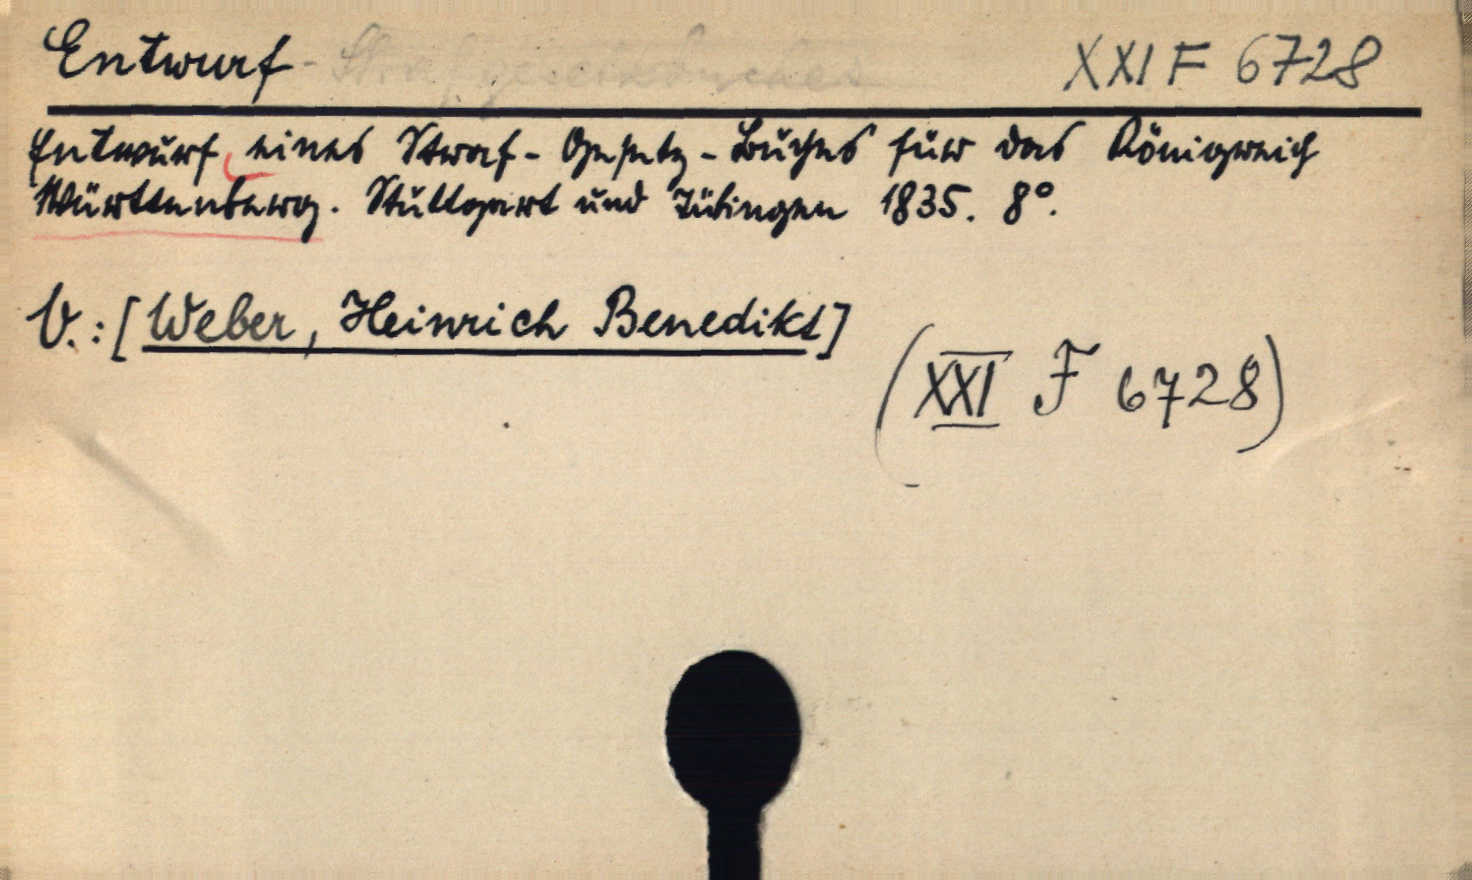 Entwurf XXI F 6728
Entwurf eines Straf-Gesetz-Buches für das Königreich
Württemberg. Stuttgart und Tübingen 1835. 8°.
V.: [Weber, Heinrich Benedikt]
(XXI F 6728)